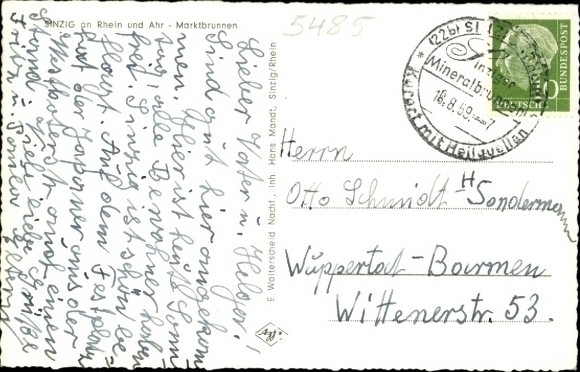 SINZIG an Rhein und Ahr - Marktbrunnen
5485
Lieber Vater u. Helga!
Sind gut hier angekom-
men. Hier ist heute Sonn-
tag, alle Bewohner haben
frei. Sinzig ist schön be-
flaggt. Auf dem Festplatz
hat der
Westerland auch einen
Stand. Viele liebe Grüße
Eltern
E. Walterscheid Nachf., Inh. Hans Mandt, Sinzig/Rhein
(22b) SINZIG
Sinziger
Mineralbrunnen
18.8.59.-7
Kurort mit Heilquellen
DEUTSCHE BUNDESPOST
10
Herrn
Otto Schmidt H Sondermann
Wuppertal-Barmen
Wittenerstr. 53.